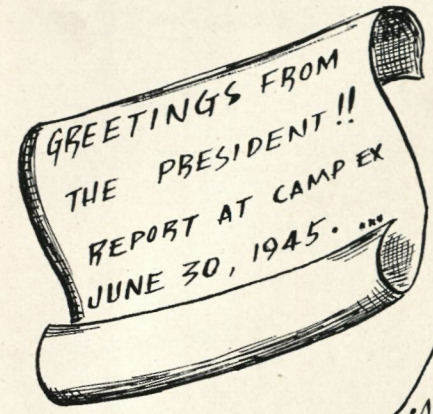 GREETINGS FROM
THE PRESIDENT!!
REPORT AT CAMP EX
JUNE 30, 1945. ...